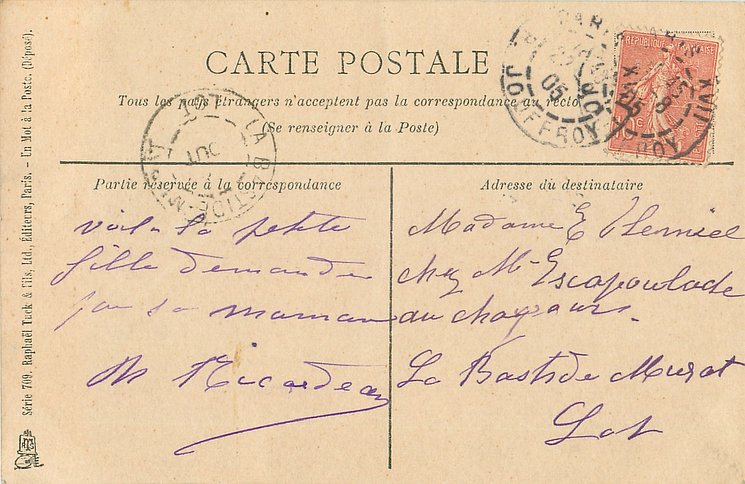 CARTE POSTALE
Tous les pays étrangers n'acceptent pas la correspondance au recto
(Se renseigner à la Poste)
Partie réservée à la correspondance
voila la petite
fille demandée
par sa maman
M Ricardeau
Adresse du destinataire
Madame E
chez Mr Escapoulade
au
La Bastide Murat
Lot
Série 709. Raphaël Tuck & Fils, Ltd., Éditeurs, Paris. - Un Mot à la Poste. (Déposé).
RÉPUBLIQUE FRANÇAISE
10 c
PARIS XVII
R. JOUFFROY
05
LA BASTIDE-MURAT
LOT